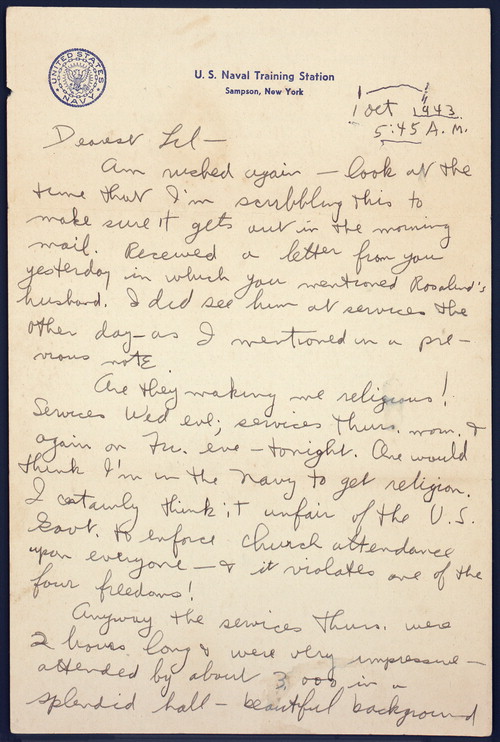 UNITED STATES NAVY
U. S. Naval Training Station
Sampson, New York
1 Oct 1943
5:45 A.M.
Dearest Lil—
Am rushed again — look at the
time that I'm scribbling this to
make sure it gets out in the morning
mail. Received a letter from you
yesterday in which you mentioned Rosalind's
husband. I did see him at services the
other day—as I mentioned in a pre-
vious note.
Are they making me religious!
Services Wed eve; services Thurs. morn. &
again on Fri. eve — tonight. One would
think I'm in the Navy to get religion.
I certainly think it unfair of the U.S.
Govt. to enforce church attendance
upon everyone — & it violates one of the
four freedoms!
Anyway the services Thurs. were
2 hours long & were very impressive—
attended by about 3,000 in a
splendid hall — beautiful background